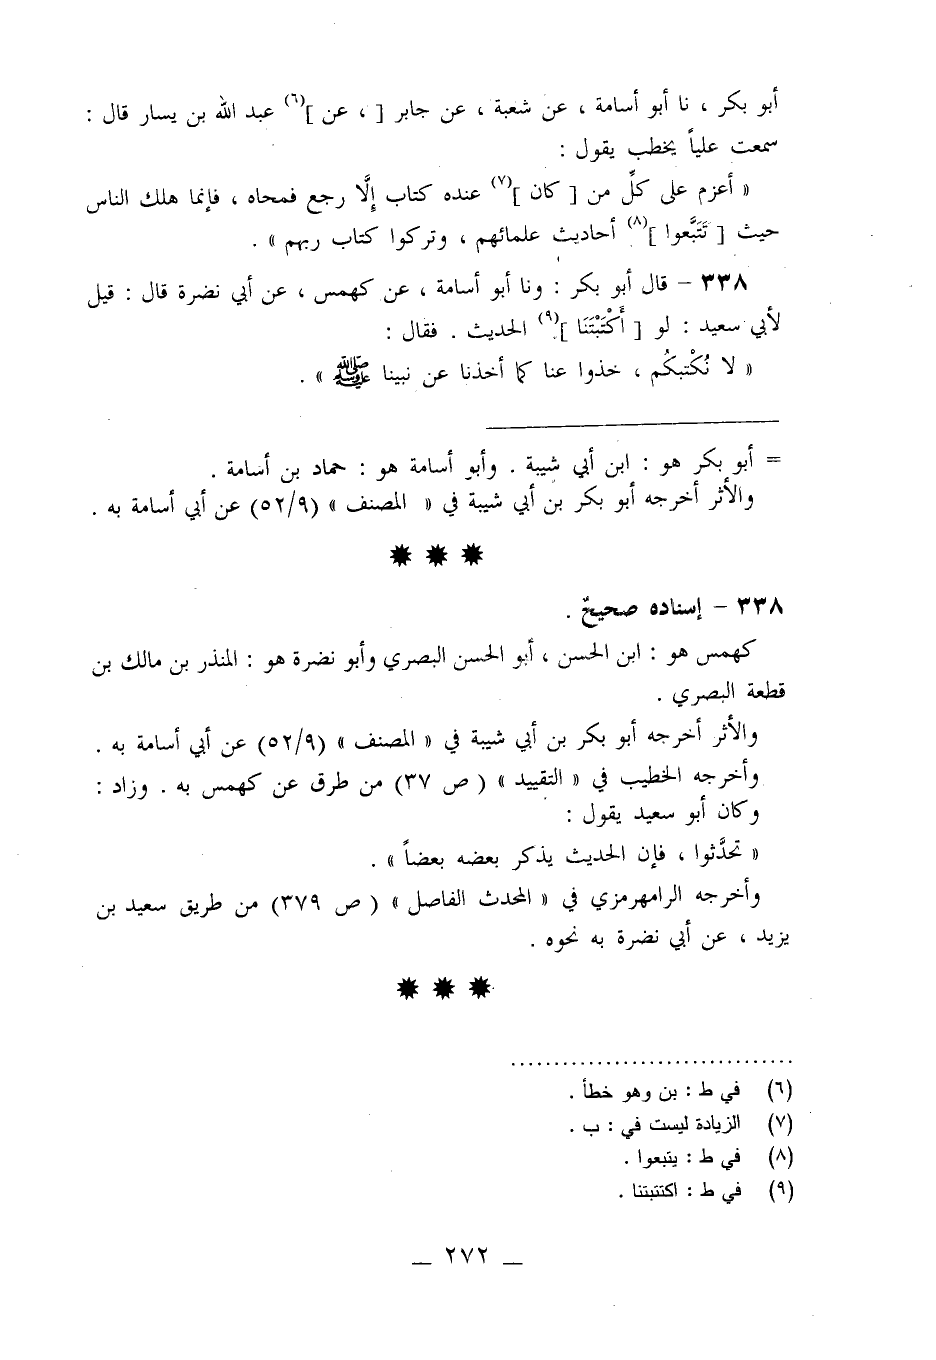 أبو بكر ، نا أبو أسامة ، عن شعبة ، عن جابر [ ، عن ](٦) عبد الله بن يسار قال :
سمعت علياً يخطب يقول :
« أعزم على كلِّ من [ كان ](٧) عنده كتاب إِلَّا رجع فمحاه ، فإنما هلك الناس
حيث [ تَتَبَّعوا ](٨) أحاديث علمائهم ، وتركوا كتاب ربهم » .
٣٣٨ - قال أبو بكر : ونا أبو أسامة ، عن كهمس ، عن أبي نضرة قال : قيل
لأبي سعيد : لو [ أَكْتَبْتَنَا ](٩) الحديث . فقال :
« لا نُكْتبكُم ، خذوا عنا كما أخذنا عن نبينا ﷺ » .
= أبو بكر هو : ابن أبي شيبة . وأبو أسامة هو : حماد بن أسامة .
والأثر أخرجه أبو بكر بن أبي شيبة في « المصنف » (٥٢/٩) عن أبي أسامة به .
٣٣٨ - إسناده صحيحٌ .
كهمس هو : ابن الحسن ، أبو الحسن البصري وأبو نضرة هو : المنذر بن مالك بن
قطعة البصري .
والأثر أخرجه أبو بكر بن أبي شيبة في « المصنف » (٥٢/٩) عن أبي أسامة به .
وأخرجه الخطيب في « التقييد » ( ص ٣٧) من طرق عن كهمس به . وزاد :
وكان أبو سعيد يقول :
« تحدَّثوا ، فإن الحديث يذكر بعضه بعضاً » .
وأخرجه الرامهرمزي في « المحدث الفاصل » ( ص ٣٧٩) من طريق سعيد بن
يزيد ، عن أبي نضرة به نحوه .
(٦) في ط : بن وهو خطأ .
(٧) الزيادة ليست في : ب .
(٨) في ط : يتبعوا .
(٩) في ط : اكتتبتنا .
_ ٢٧٢ _